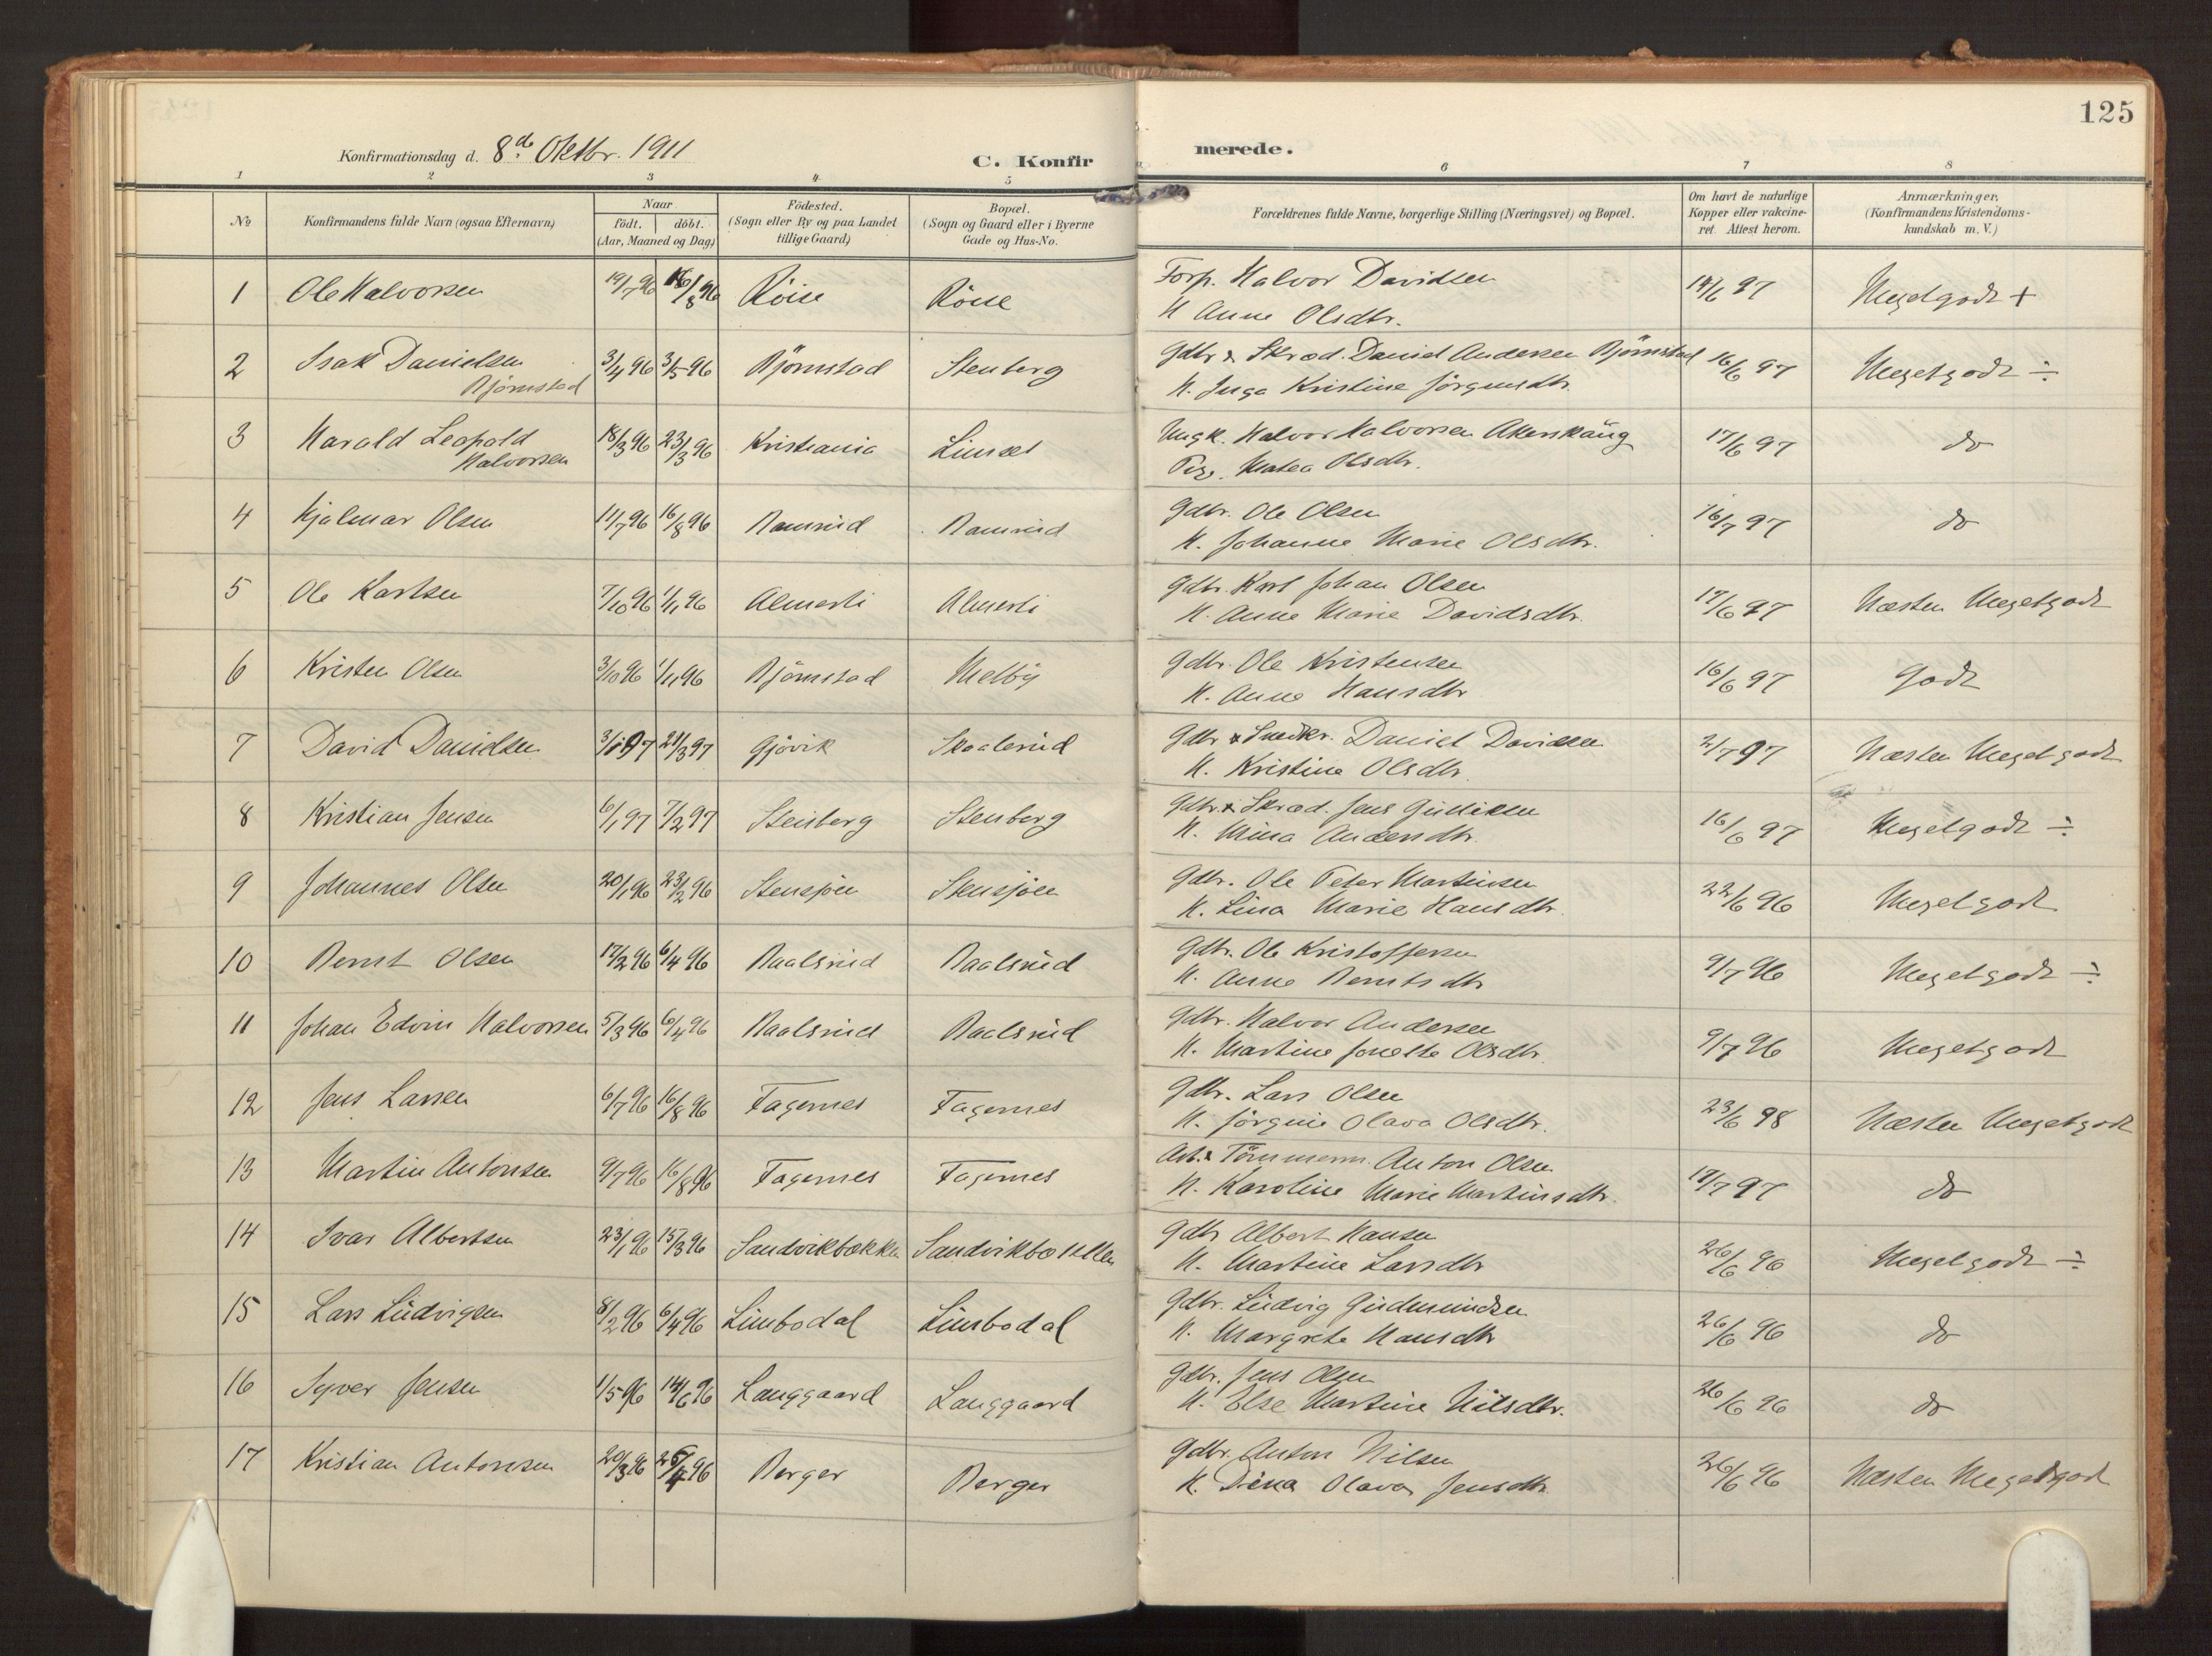 125
Konfirmationsdag d. 8de Oktbr. 1911
C. Konfirmerede.
1 2 3 4 5 6 7 8
No
Konfirmandens fulde Navn (ogsaa Efternavn)
Naar
födt. döbt.
(Aar, Maaned og Dag)
Födested.
(Sogn eller By og paa Landet
tillige Gaard)
Bopæl.
(Sogn og Gaard eller i Byerne
Gade og Hus-No.
Forældrenes fulde Navne, borgerlige Stilling (Næringsvei) og Bopæl.
Om havt de naturlige
Kopper eller vakcine-
ret. Attest herom.
Anmærkninger.
(Konfirmandens Kristendoms-
kundskab m. V.)
1 Ole Halvorsen 19/7 96 16/8 96 Röise Röise Forp. Halvor Davidsen 14/6 97 Megetgodt +
H Anne Olsdtr.
2 Isak Danielsen 3/4 96 3/5 96 Björnstad Stenberg Gdbr & Skræd. Daniel Andersen Björnstad 16/6 97 Megetgodt ÷
Björnstad H. Inga Kristine Jörgensdtr
3 Harald Leopold 18/3 96 23/3 96 Kristiania Limset Ungk. Halvor Halvorsen 17/6 97 do
Halvorsen Pig. Matea Olsdtr.
4 Hjalmar Olsen 11/7 96 16/8 96 Ramsrud Ramsrud Gdbr. Ole Olsen 16/7 97 do
H. Johanne Marie Olsdtr.
5 Ole Karlsen 7/10 96 1/11 96 Almerli Almerli Gdbr. Karl Johan Olsen 17/6 97 Næsten Megetgodt
H. Anne Marie Davidsdtr.
6 Kristen Olsen 3/10 96 1/11 96 Björnstad Melby Gdbr. Ole Kristensen 16/6 97 Godt
H. Anne Hansdtr
7 David Danielsen 3/1 97 21/3 97 Gjövik Skaalerud Gdbr & Snedkr. Daniel Davidsen 2/7 97 Næsten Megetgodt
H. Kristine Olsdtr
8 Kristian Jensen 6/1 97 7/2 97 Stenberg Stenberg Gdbr & Skræd. Jens Gulliksen 16/6 97 Megetgodt ÷
H. Mina Andersdtr.
9 Johannes Olsen 20/1 96 23/2 96 Stensjöen Stensjöen Gdbr. Ole Peter Martinsen 22/6 96 Megetgodt
H. Lina Marie Hansdtr.
10 Bernt Olsen 17/2 96 6/4 96 Baalsrud Baalsrud Gdbr. Ole Kristoffersen 9/7 96 Megetgodt ÷
H. Anne Berntsdtr
11 Johan Edvin Halvorsen 5/3 96 6/4 96 Baalsrud Baalsrud Gdbr. Halvor Andersen 9/7 96 Megetgodt
H. Martine Jonette Olsdtr.
12 Jens Larsen 6/7 96 16/8 96 Fagernes Fagernes Gdbr. Lars Olsen 23/6 98 Næsten Megetgodt
H. Jörgine Olava Olsdtr.
13 Martin Antonsen 9/7 96 16/8 96 Fagernes Fagernes Arb. & Tömmerm. Anton Olsen 18/7 97 do
H. Karoline Marie Martinsdtr.
14 Ivar Albertsen 23/1 96 15/3 96 Sandvikbækken Sandvikbækken Gdbr Albert Hansen 26/6 96 Megetgodt ÷
H. Martine Larsdtr
15 Lars Ludvigsen 8/2 96 6/4 96 Limbodal Limbodal Gdbr. Ludvig Gudmundsen 26/6 96 do
H. Margrete Hansdtr
16 Syver Jensen 1/5 96 14/6 96 Langgaard Langgaard Gdbr. Jens Olsen 26/6 96 do
H. Else Martine Nilsdtr.
17 Kristian Antonsen 20/3 96 26/4 96 Berger Berger Gdbr. Anton Nilsen 26/6 96 Næsten Megetgodt
H. Dina Olava Jensdtr.